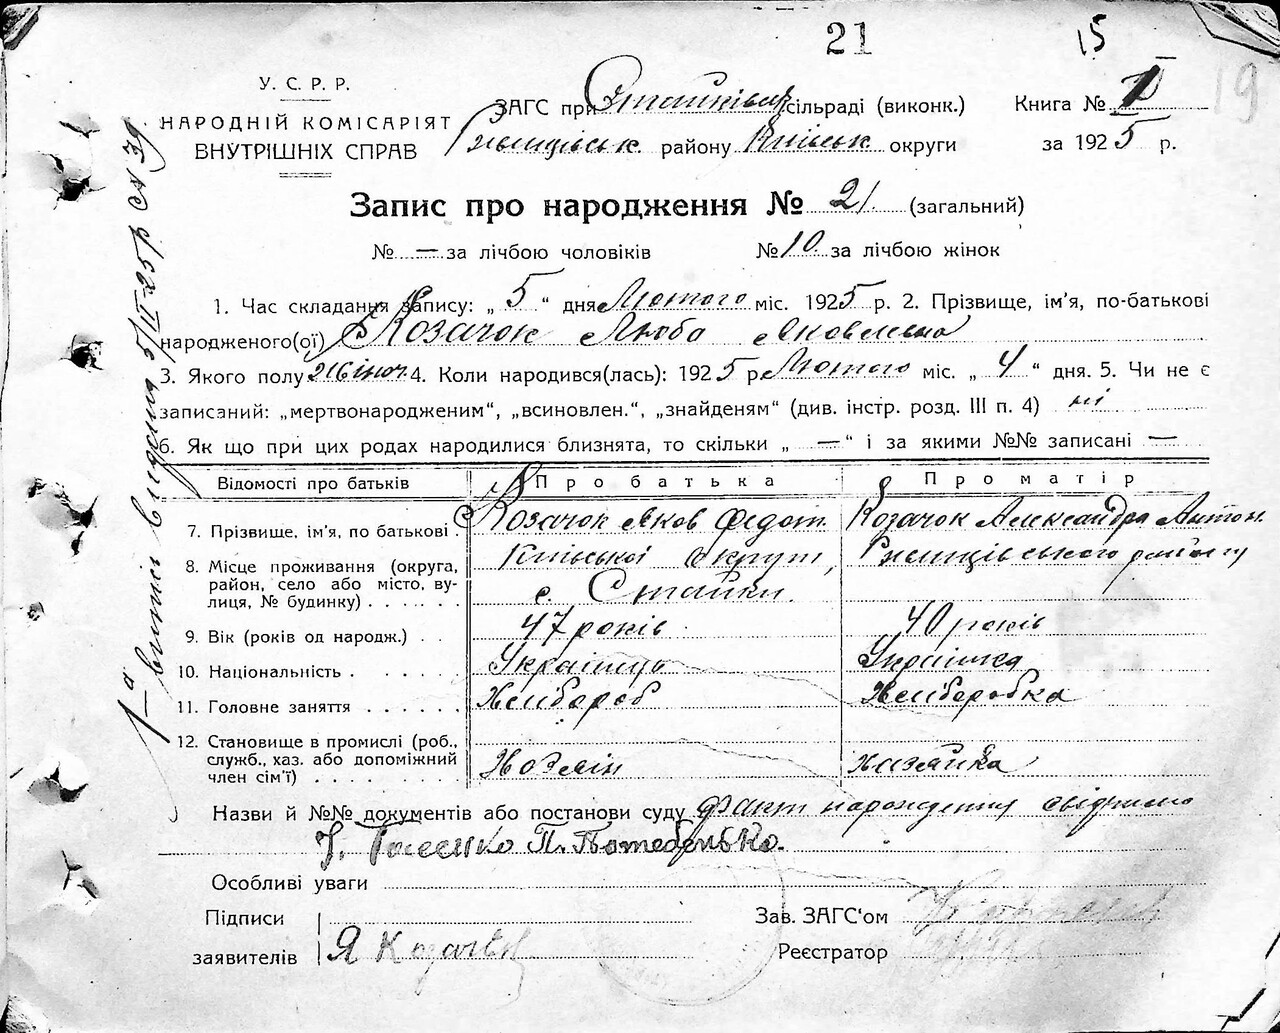 21 15
19
У. С. Р. Р.
НАРОДНІЙ КОМІСАРІЯТ
ВНУТРІШНІХ СПРАВ
ЗАГС при Стайківськ сільраді (виконк.) Книга №
Ржищівськ. району Київськ округи за 1925 р.
Запис про народження № 21. (загальний)
№ — за лічбою чоловіків № 10. за лічбою жінок
1. Час складання запису: „ 5 “ дня Лютого міс. 1925 р. 2. Прізвище, ім'я, по-батькові
народженого(ої) Козачок Люба Яковлевна
3. Якого полу жіноч. 4. Коли народився(лась): 1925 р. Лютого міс. „ 4 “ дня. 5. Чи не є
записаний: „мертвонародженим“, „всиновлен.“, „знайденям“ (див. інстр. розд. III п. 4) ні
6. Як що при цих родах народилися близнята, то скільки „ — “ і за якими №№ записані —
Відомості про батьків Про батька Про матір
7. Прізвище, ім'я, по батькові . Козачок Яков Федот. Козачок Александра Антон.
8. Місце проживання (округа, Київської округи, Ржищівського району
район, село або місто, ву-
лиця, № будинку) . . . . . . с. Стайки.
9. Вік (років од народж.) . . 47 років 40 років
10. Національність . . . . . Українець Українка
11. Головне заняття . . . . . . Хлібороб Хліборобка
12. Становище в промислі (роб.,
служб., хаз. або допоміжний
член сім'ї) . . . . . . . . Хозяїн Хазяйка
Назви й №№ документів або постанови суду факт народження свідчили
П. Потебенько.
Особливі уваги
Підписи Зав. ЗАГС'ом
заявителів Я Козачок Реєстратор